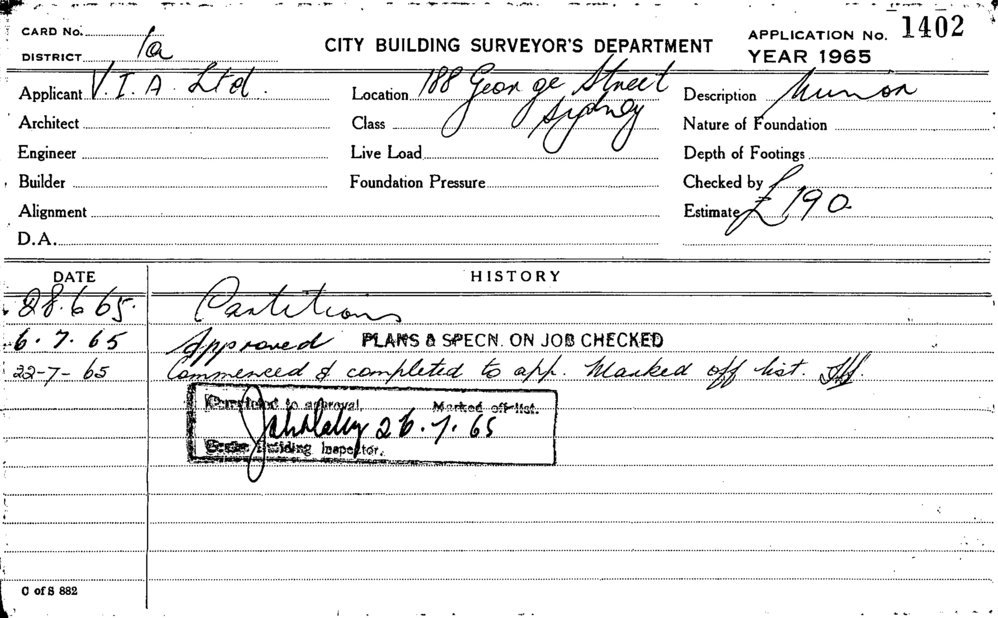 CARD No.
DISTRICT 1a
CITY BUILDING SURVEYOR'S DEPARTMENT
APPLICATION No. 1402
YEAR 1965
Applicant V.I.A. Ltd.
Location 188 George Street Sydney
Description
Architect
Class
Nature of Foundation
Engineer
Live Load
Depth of Footings
Builder
Foundation Pressure
Checked by
Alignment
Estimate £190
D.A.
DATE HISTORY
28.6.65. Partitions
6.7.65 Approved PLANS & SPECN. ON JOB CHECKED
22-7-65 Commenced & completed to app. Marked off list.
Completed to approval. Marked off list.
26.7.65
Building Inspector.
C of S 882